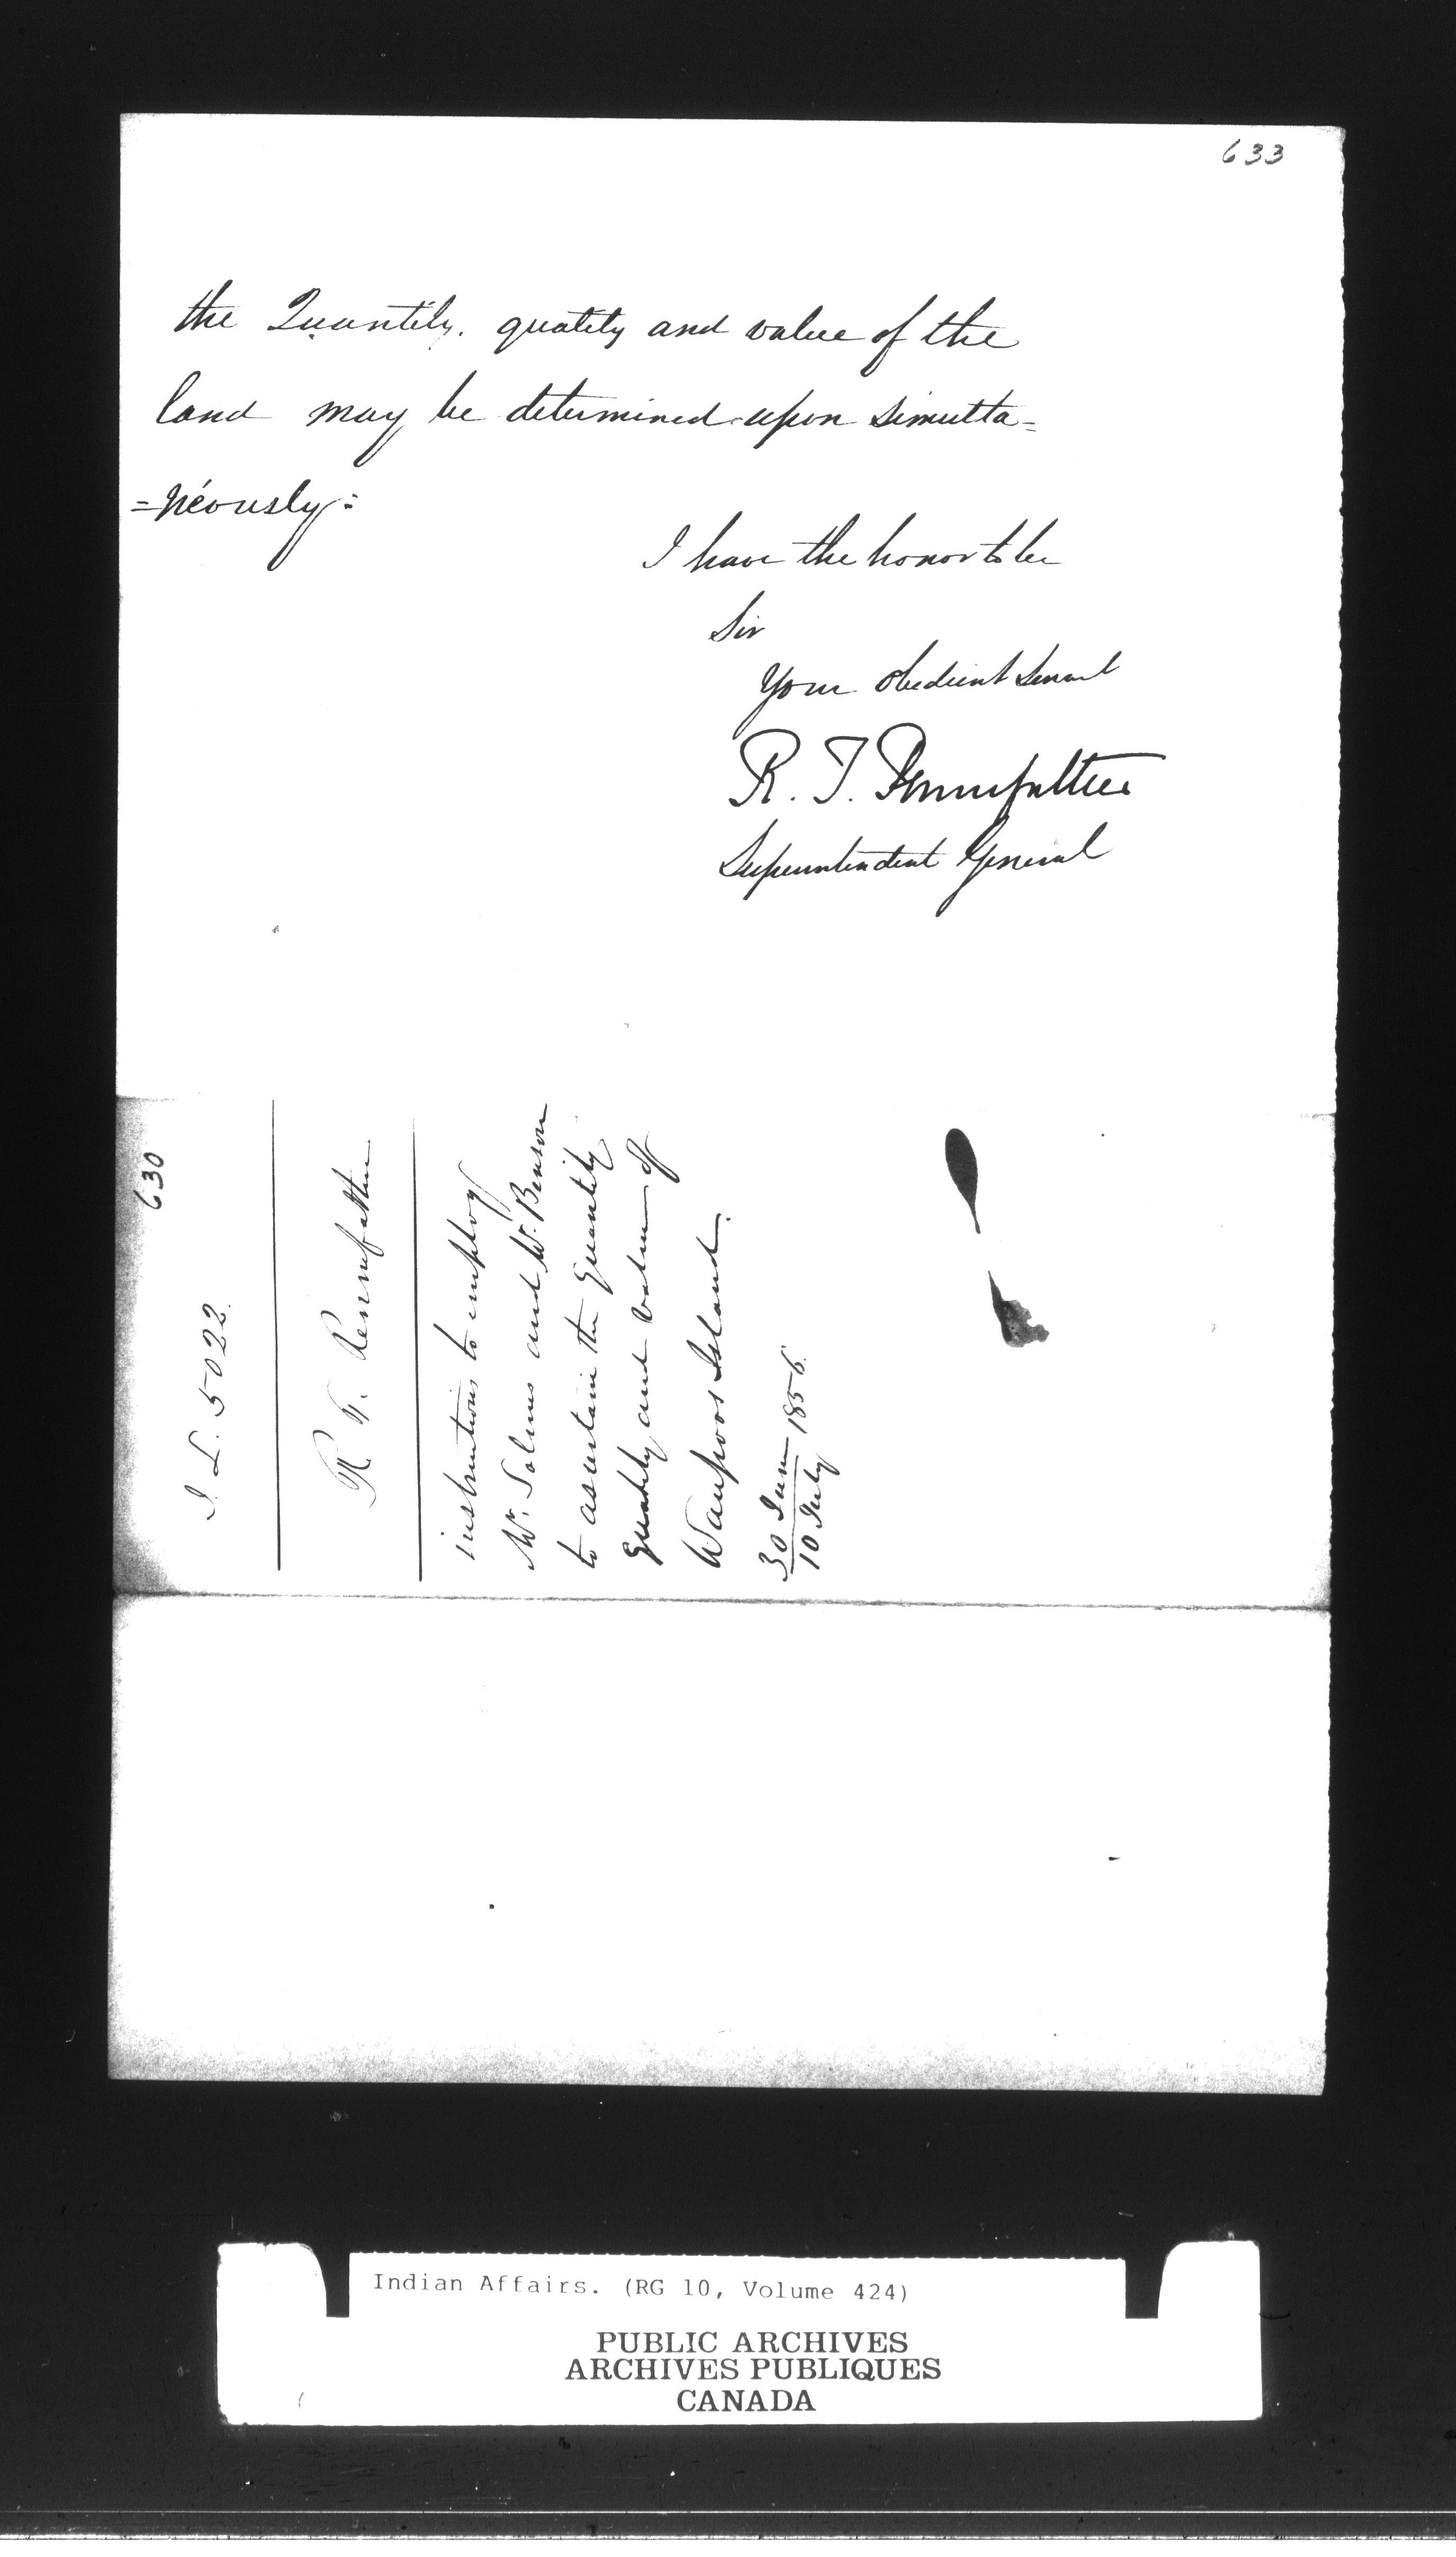 633
the Quantity. quality and value of the
land may be determined upon simulta=
=neously:
I have the honor to be
Sir
Your obedient Servant
R. T. Pennefather
Superintendent General
630
I. L. 5022.
R. T. Pennefather
instructions to employ
Mr. Solmes and Mr. Benson
to ascertain the quantity
quality and value of
Waupoos Island.
30 June 1856.
10 July
Indian Affairs. (RG 10, Volume 424)
PUBLIC ARCHIVES
ARCHIVES PUBLIQUES
CANADA